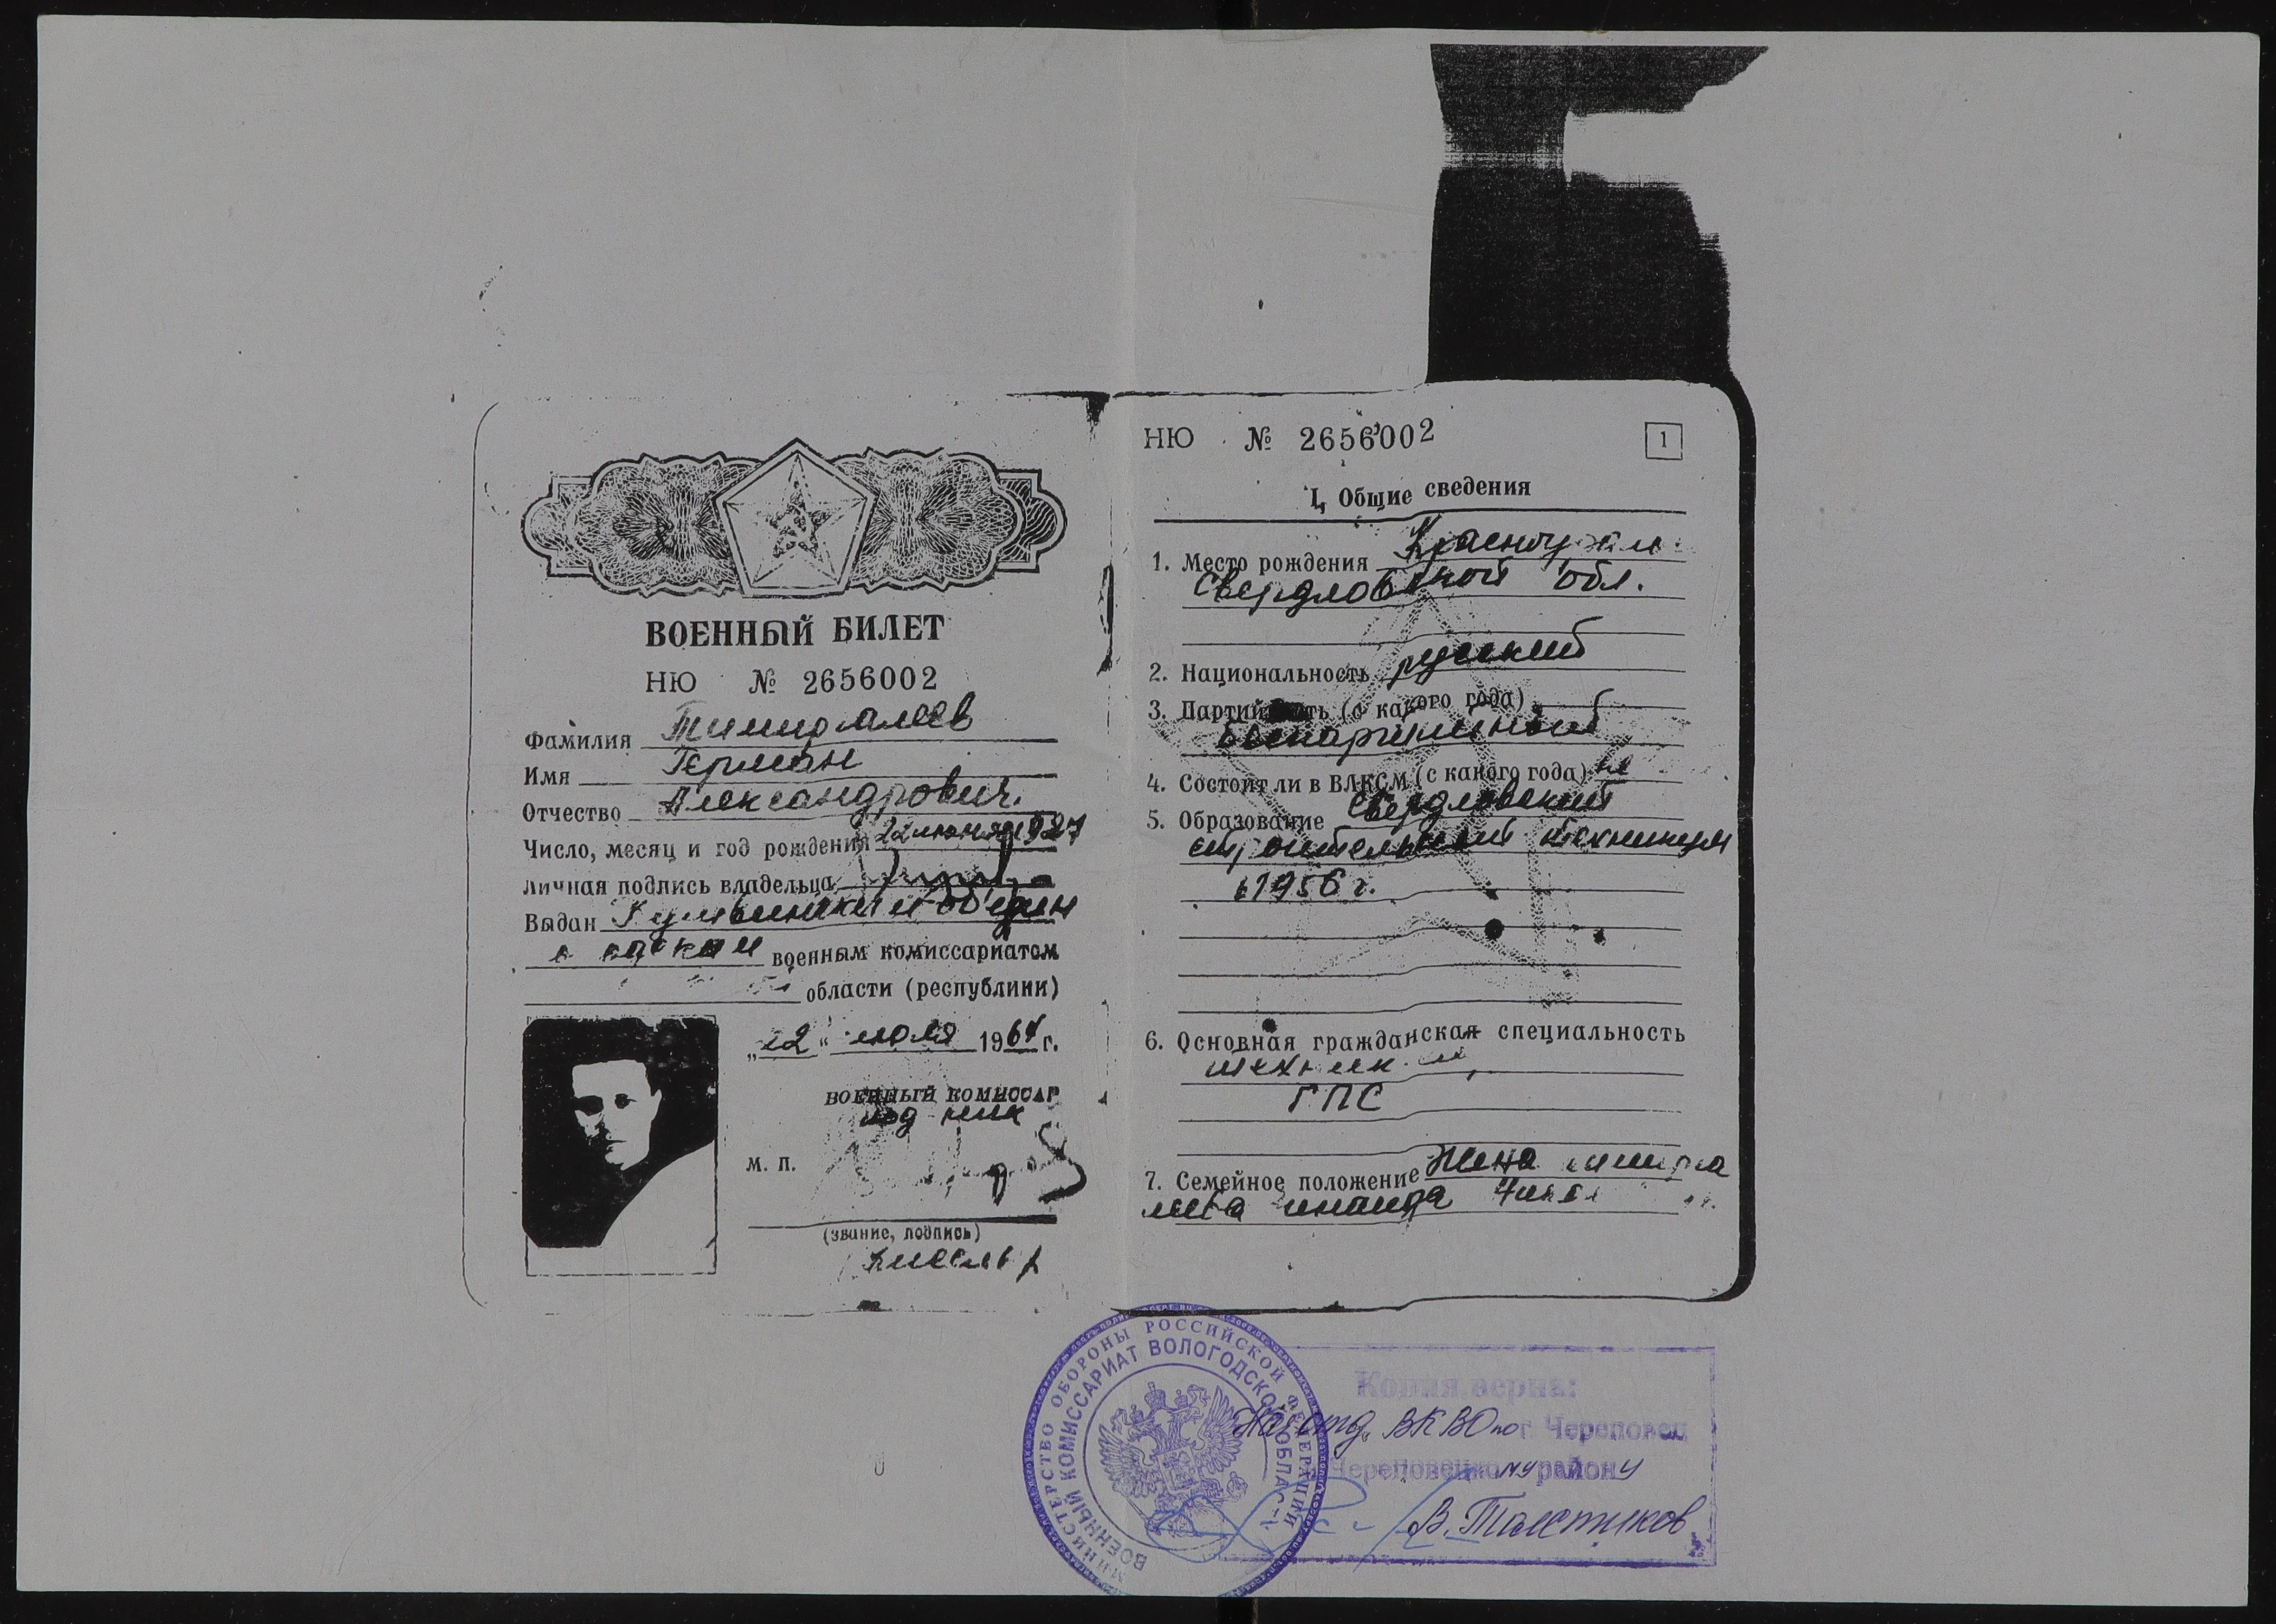 ВОЕННЫЙ БИЛЕТ
НЮ № 2656002
Фамилия
Имя Герман
Отчество Александрович.
Число, месяц и год рождения 22 июня 1927
личная подпись владельца
Выдан
военным комиссариатом
области (республики)
„12“ июля 1964 г.
ВОЕННЫЙ КОМИССАР
М. П.
(звание, подпись)
НЮ № 2656002
1
I. Общие сведения
1. Место рождения
Свердловской обл.
2. Национальность русский
3. Партийность (с какого года)
беспартийный
4. Состоит ли в ВЛКСМ (с какого года) не
5. Образование Свердловский
строительный техникум
в 1956 г.
6. Основная гражданская специальность
техник
ГПС
7. Семейное положение Жена
МИНИСТЕРСТВО ОБОРОНЫ РОССИЙСКОЙ ФЕДЕРАЦИИ
ВОЕННЫЙ КОМИССАРИАТ ВОЛОГОДСКОЙ ОБЛАСТИ
Копия верна:
Нач. отд. ВКВО по г. Череповец
Череповецкому району
В. Толстиков